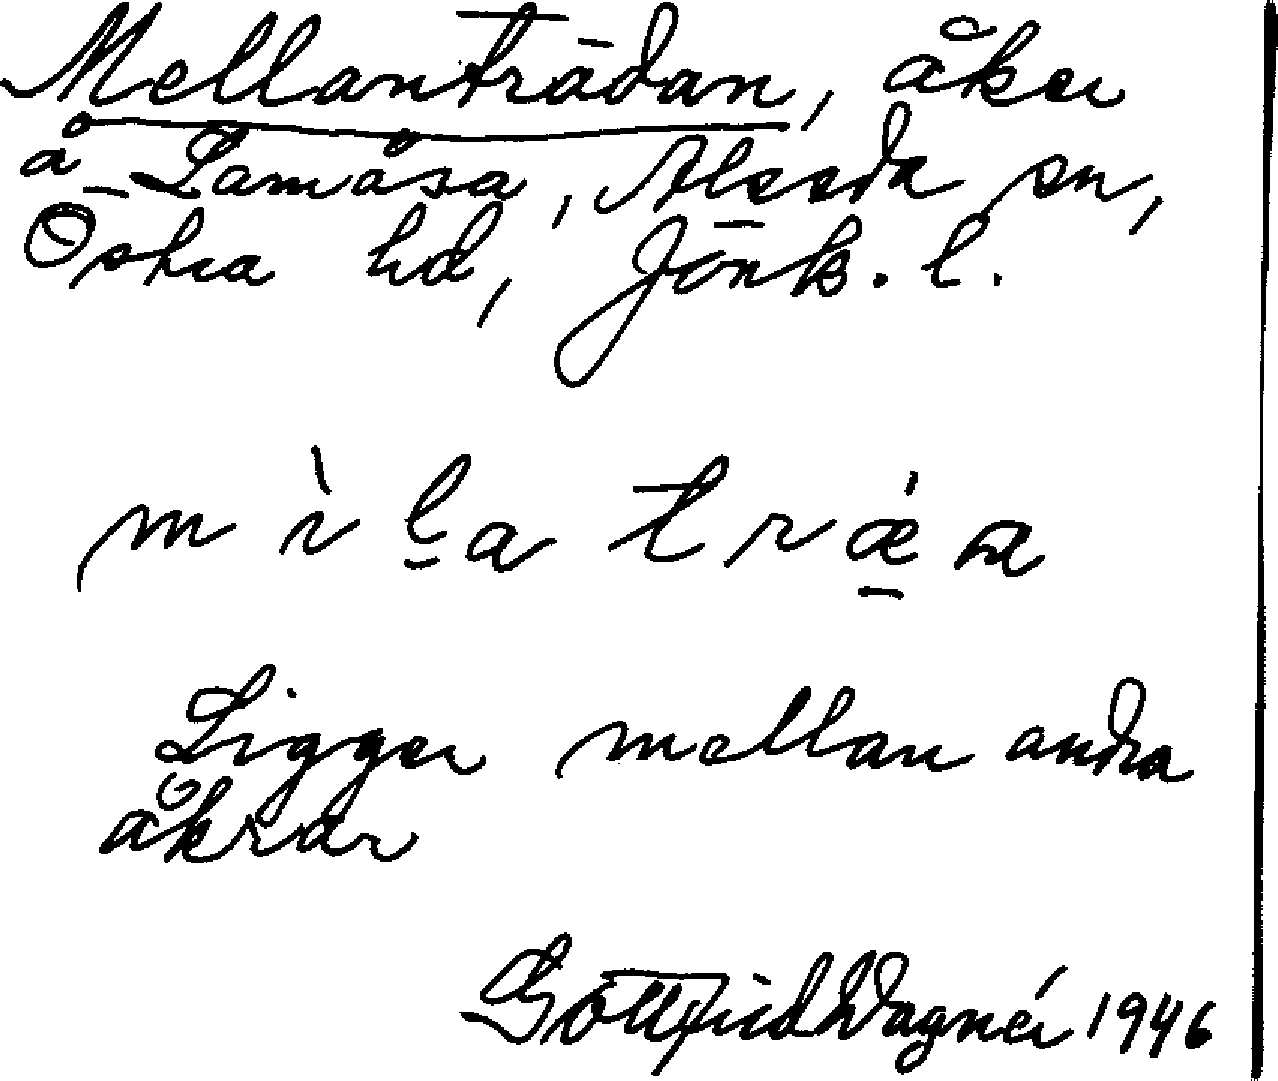 Mellanträdan, åker
å Lamåsa, Alseda sn,
Östra hd, Jönk. l.
mìḻa trǽ̱a
Ligger mellan andra
åkrar
Gottfrid Wagnér 1946